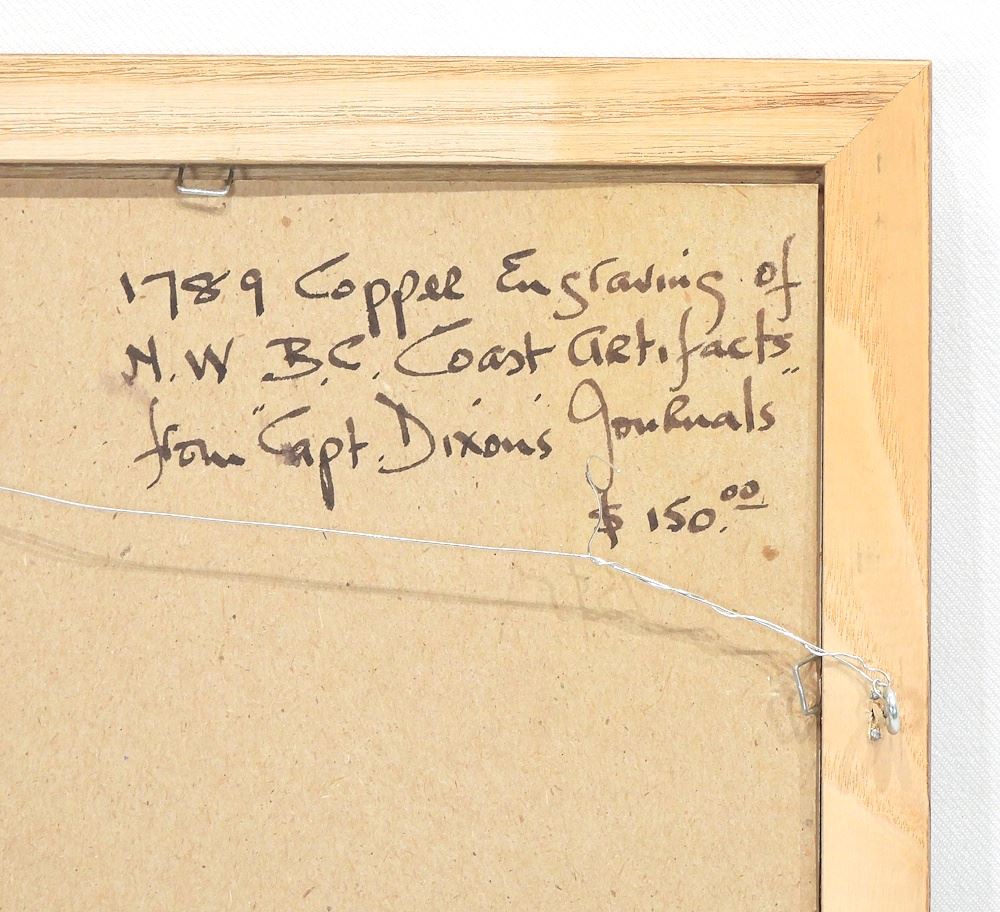 1789 Copper Engraving of
N.W B.C. Coast Artifacts
from "Capt. Dixon's Journals"
$ 150.00